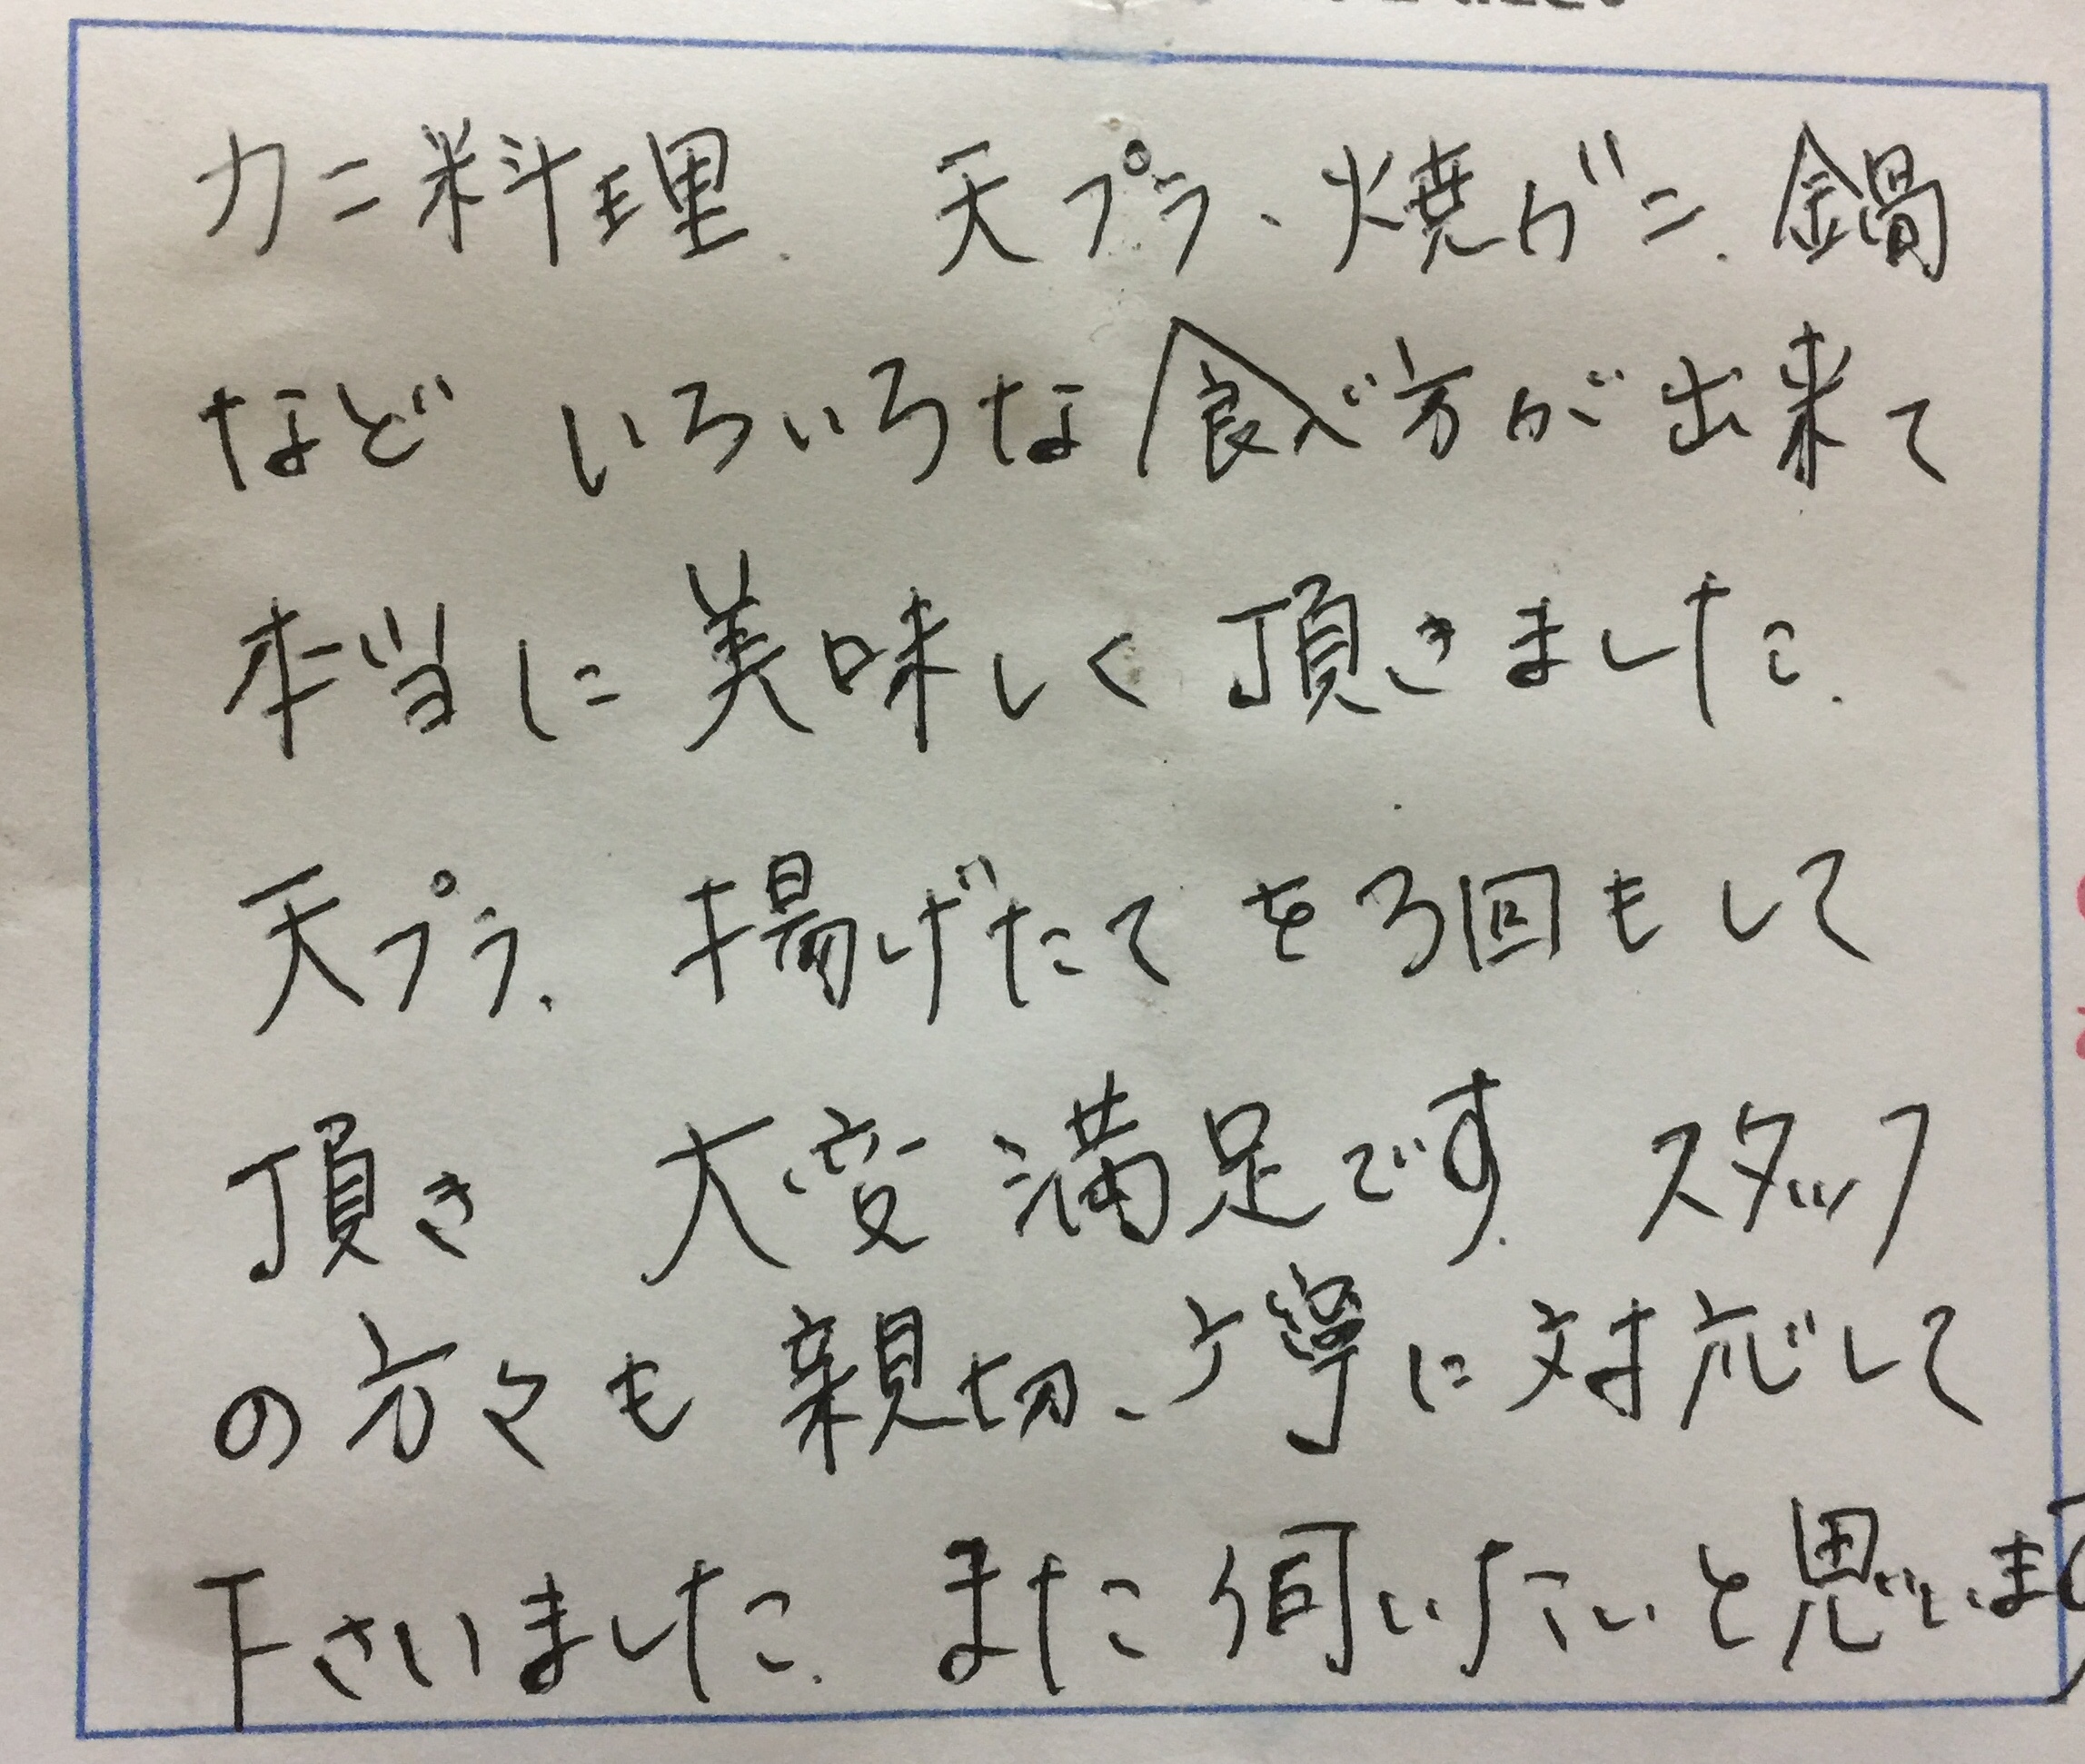 カニ料理、 天プラ、焼ガニ、鍋
など いろいろな食べ方が出来て
本当に美味しく頂きました。
天プラ、 揚げたてを3回もして
頂き 大変満足です。 スタッフ
の方々も親切、丁寧に対応して
下さいました。 また伺いたいと思います